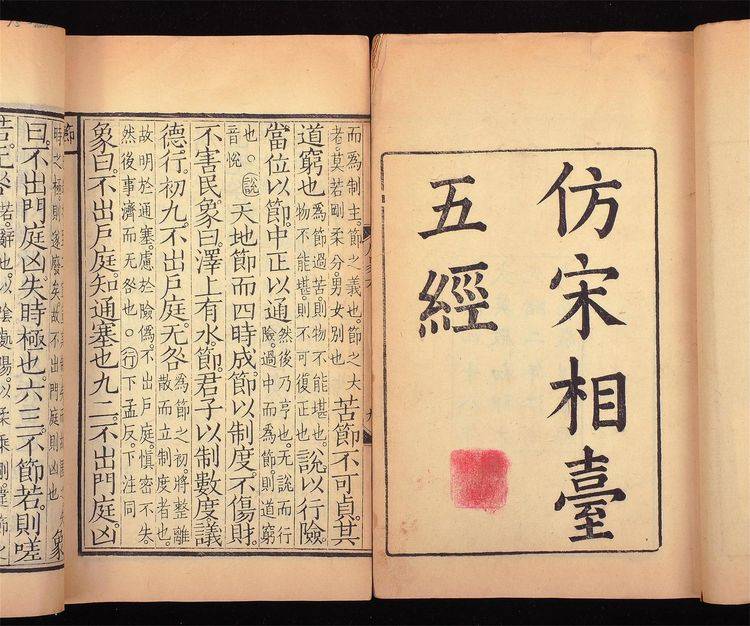 仿宋相臺
五經
而為制主。節之義也。節之大
者。莫若剛柔分。男女別也
苦節不可貞。其
道窮也
為節過苦。則物不能堪也。
物不能堪。則不可復正也
說以行險。
當位以節。中正以通
然後乃亨也。无說而行
險。過中而為節則道窮
也。
音悅
說
天地節而四時成。節以制度。不傷財。
不害民。象曰。澤上有水。節。君子以制數度議
德行。初九。不出戶庭。无咎
為節之初。將整離
散而立制度者也。
故明於通塞。慮於險偽。不出戶庭。慎密不失。
然後事濟而无咎也。行下孟反。下注同
象曰。不出戶庭。知通塞也。九二。不出門庭凶
節
時之極。則遂廢矣。故不出門庭則凶也
象
曰。不出門庭凶。失時極也。六三。不節若。則嗟
若。无咎
若。辭也。以陰處陽。以柔乘剛。違節之